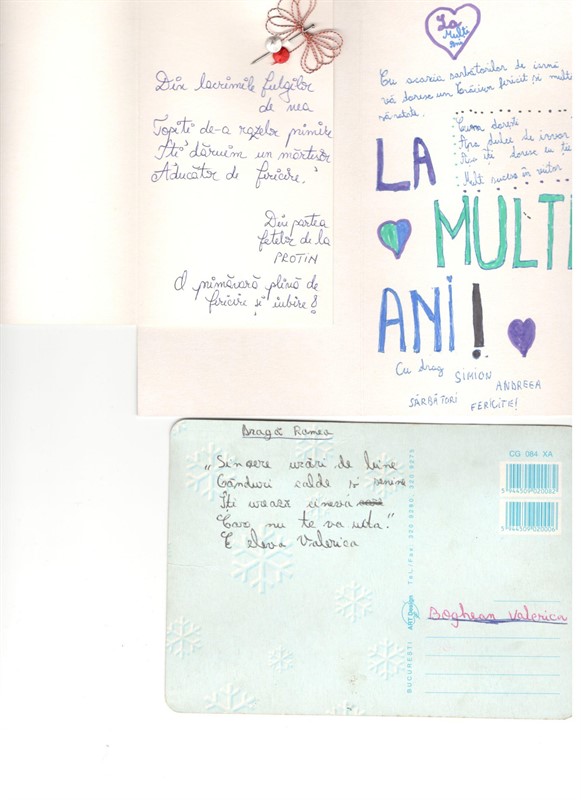 Din lacrimile fulgilor
de nea
Topiti de-a razelor primire
Iti dăruim un mărtisor
Aducător de fericire.
Din partea
fetelor de la
PROTIN
O primăvară plină de
fericire și iubire!
La
Multi
Ani
Cu ocazia sarbătorilor de iarnă
vă doresc un Crăciun fericit și multă
sănătate.
Cum dorești
Apa dulce de isvor
iti doresc eu tie
Mult succes în viitor
LA
MULTI
ANI!
Cu drag
SIMION
ANDREEA
SĂRBĂTORI
FERICITE!
Dragă Romea
„Sincere urări de bine
Gânduri calde și senine
Iti urează cineva
Care nu te va uita."
E eleva Valerica
CG 084 XA
5 944509 020082
5 944509 020006
BUCURESTI ART Design Tel./Fax:
Boghean Valerica